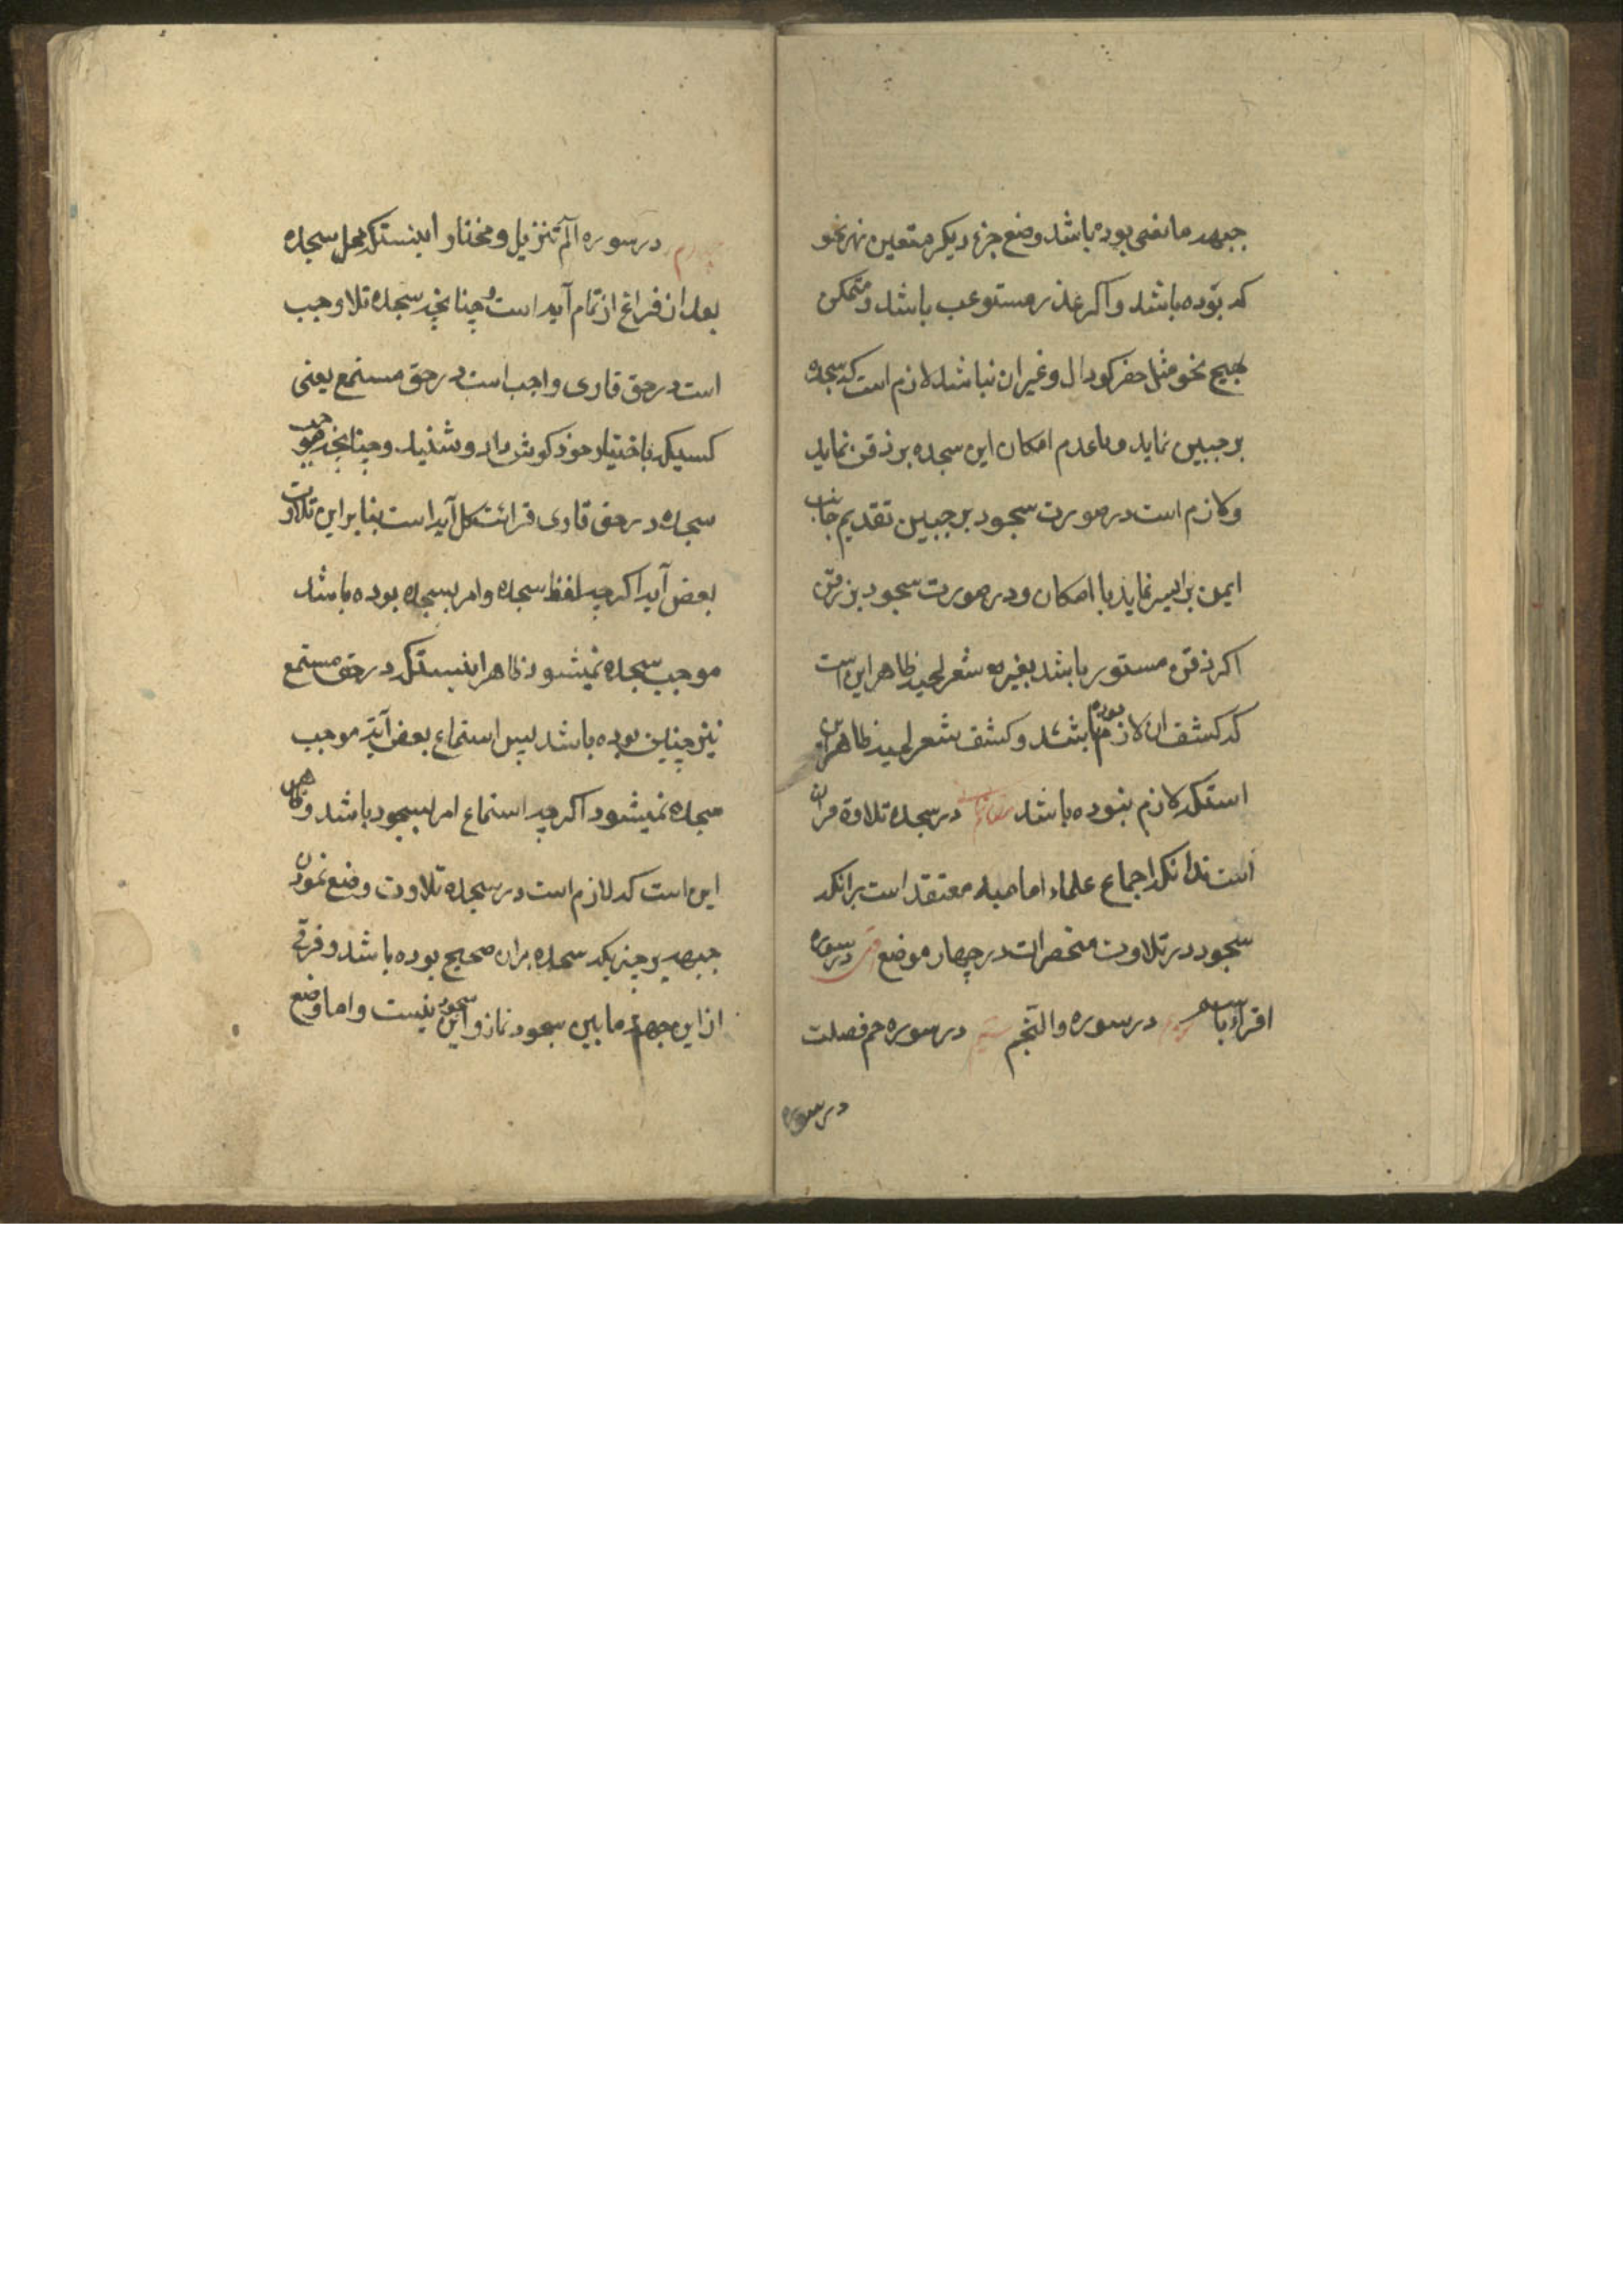 جبهه مانعی بوده باشد وضع جزء دیکر متعین بهر نحو
که بوده باشد و اکر عذر مستوعب باشد و متمکن
بهیچ نحو مثل حفر کودال و غیر ان نباشد لازم است که سجده
بر جبین نماید و با عدم امکان این سجده بر ذقن نماید
و لازم است در صورت سجود بر جبین تقدیم جانب
ایمن بر ایسر نماید با امکان و در صورت سجود بر ذقن
اکر ذقن مستور باشد بغیر شعر لحیه ظاهر این است
که کشف ان لازم بوده باشد و کشف شعر لحیه ظاهر این
استکه لازم نبوده باشد در سجده تلاوة قران
است بدانکه اجماع علماء امامیه معتقد است برانکه
سجود در تلاوت منحصر است در چهار موضع در سوره
اقراء باسم در سوره والنجم در سوره حم فصلت
در سوره
چهارم در سوره الم تنزیل و مختار اینستکه محل سجده
بعد از فراغ از تمام آیه است و چنانچه سجده تلاوت واجب
است در حق قاری واجب است در حق مستمع یعنی
کسیکه باختیار خود کوش داد و شنید و چنانچه موجب
سجده در حق قاری قرائت کل آیه است بنابراین تلاوت
بعض آیه اکرچه لفظ سجده و امر بسجده بوده باشد
موجب سجده نمیشود ظاهر اینستکه در حق مستمع
نیز چنین بوده باشد پس استماع بعض آیه موجب
سجده نمیشود اکرچه استماع امر بسجود باشد و ظاهر
این است که لازم است در سجده تلاوت وضع نمودن
جبهه بر چیزیکه سجده بران صحیح بوده باشد و فرقی
از این جهة ما بین سجود نماز و این سجود نیست و اما وضع